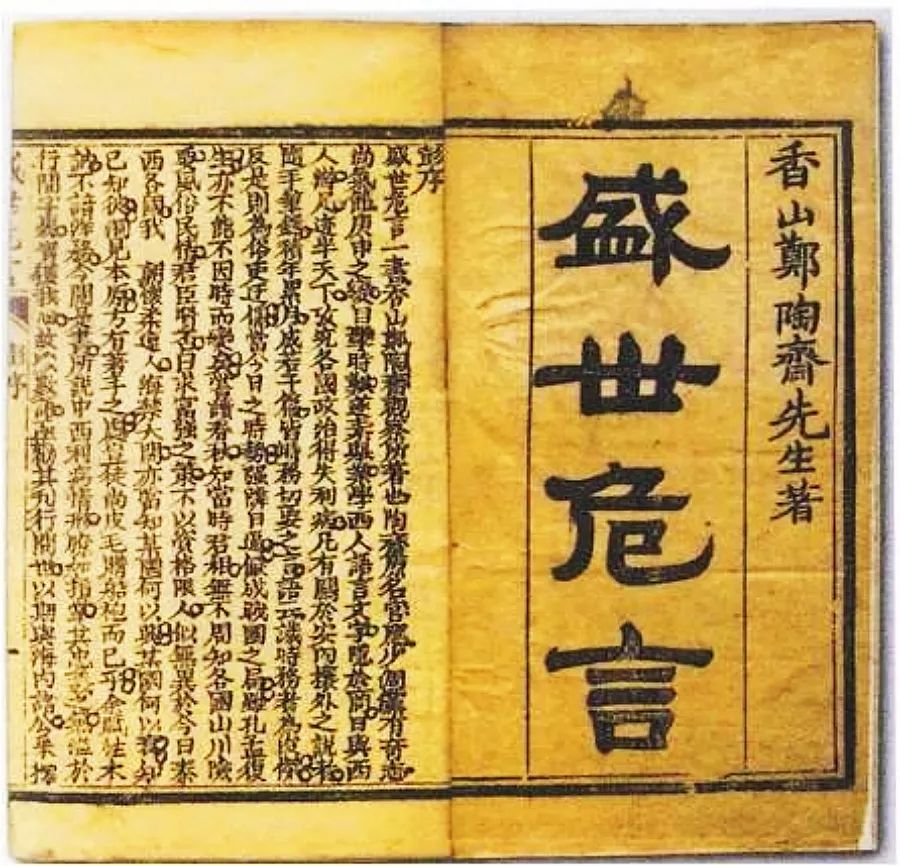 香山鄭陶齋先生著
盛世危言
彭序
盛世危言一書香山鄭陶齋觀察所著也陶齋原名官應少倜儻有奇志
尚氣節庚申之變目擊時艱遂棄舉業學西人語言文字隱於商日與西
人游足遺半天下攷究各國政治得失利病凡有關於安內攘外之說者
隨手筆錄積年累月成若干篇皆時務切要之言語云識時務者為俊傑
反是則為俗吏迂儒當今日之時勢強鄰日逼儼成戰國之局雖孔孟復
生亦不能不因時而變矣嘗讀春秋知當時君相無不周知各國山川險
要風俗民情君臣賢否日求富強之策不以資格限人似無異於今日泰
西各國我 朝懷柔遠人海禁大開亦當知某國何以興某國何以 知
己知彼洞見本原方有著手之處豈徒尚皮毛購船砲而已乎余 木
訥不諳洋務今閱是書所說中西利病情形瞭如指掌其忠義之氣溢於
行間字裏實獲我心故 數語勸其刊行問世以期與海內諸公采擇